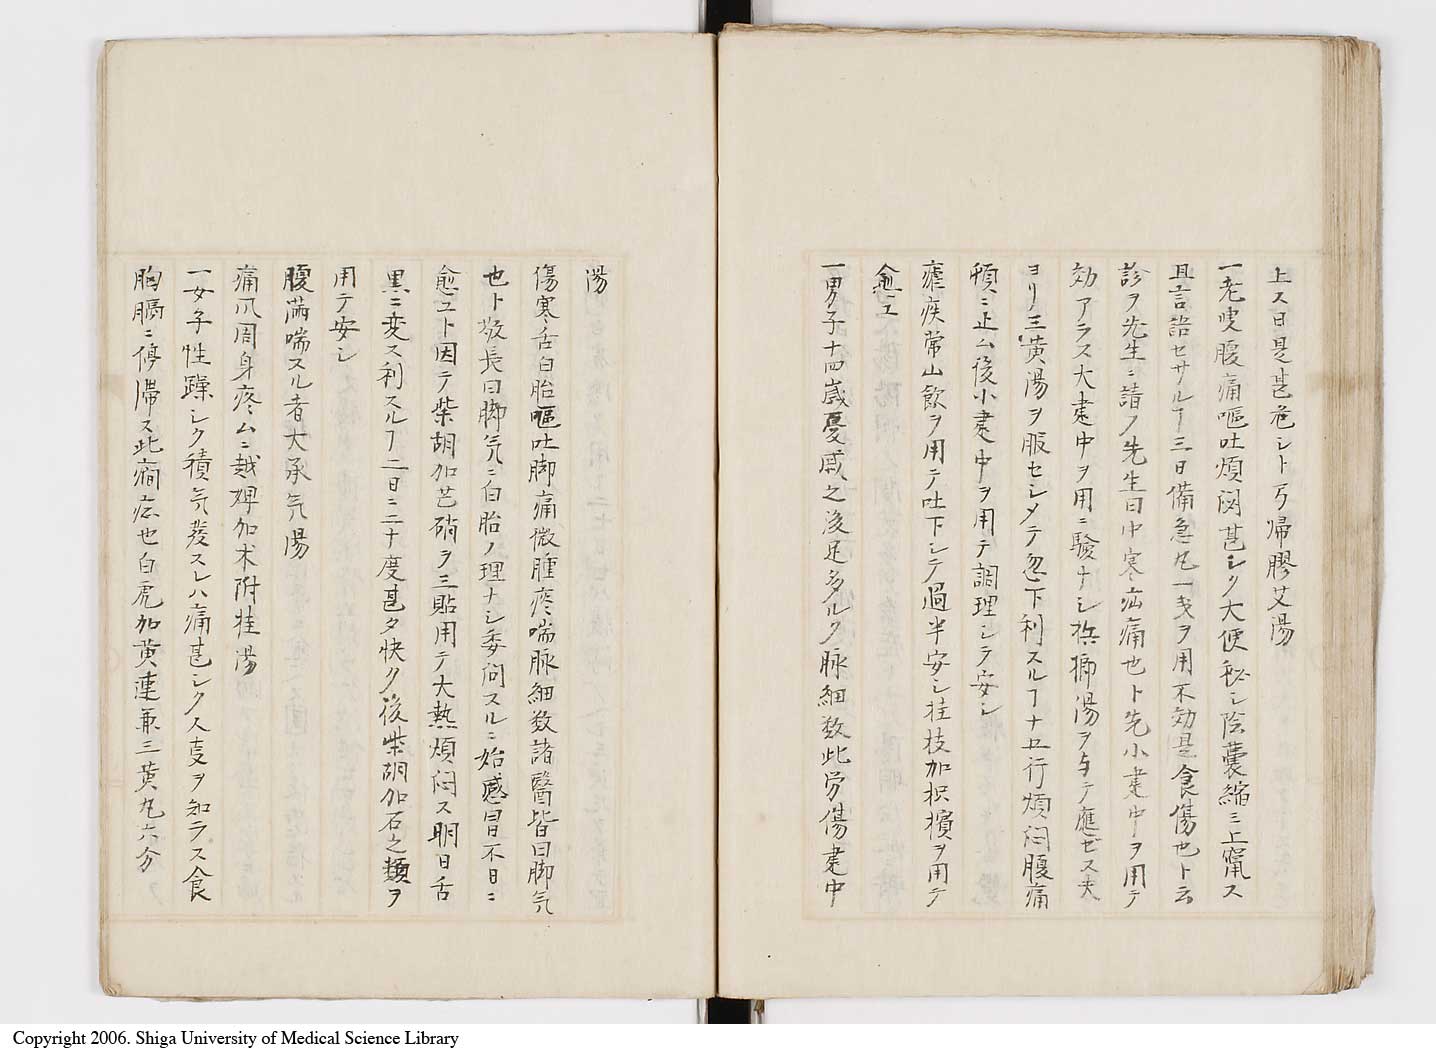 上ス曰是甚危シト芎帰膠艾湯
一老叟腹痛嘔吐煩悶甚シク大便秘シ陰嚢縮ミ上竄ス
且言語セサルヿ三日備急丸一戔ヲ用不効是食傷也ト云
診ヲ先生ニ請フ先生曰中寒疝痛也ト先小建中ヲ用テ
効アラス大建中ヲ用ニ験ナシ梹榔湯ヲ与テ應ゼス夫
ヨリ三黄湯ヲ服セシメテ忽下利スルヿ十五行煩悶腹痛
頓ニ止ム後小建中ヲ用テ調理シテ安シ
瘧疾常山飲ヲ用テ吐下シテ過半安シ桂枝加枳擯ヲ用テ
愈エ
一男子十四歳憂慼之後足多ルク脉細数此労傷建中
湯
傷寒舌白胎嘔吐脚痛微腫疼喘脉細数諸醫皆曰脚气
也ト敬長曰脚气ニ白胎ノ理ナシ委問スルニ始感冒不日ニ
愈ユト因テ柴胡加芒硝ヲ三貼用テ大熱煩悶ス明日舌
黒ニ変ス利スルヿ二日ニ三十度甚タ快ク後柴胡加石之類ヲ
用テ安シ
腹満喘スル者大承气湯
痛风周身疼ムニ越婢加术附桂湯
一女子性躁シク積气發スレハ痛甚シク人事ヲ知ラス食
胸膈ニ停滞ス此癇症也白虎加黄連兼三黄丸六分